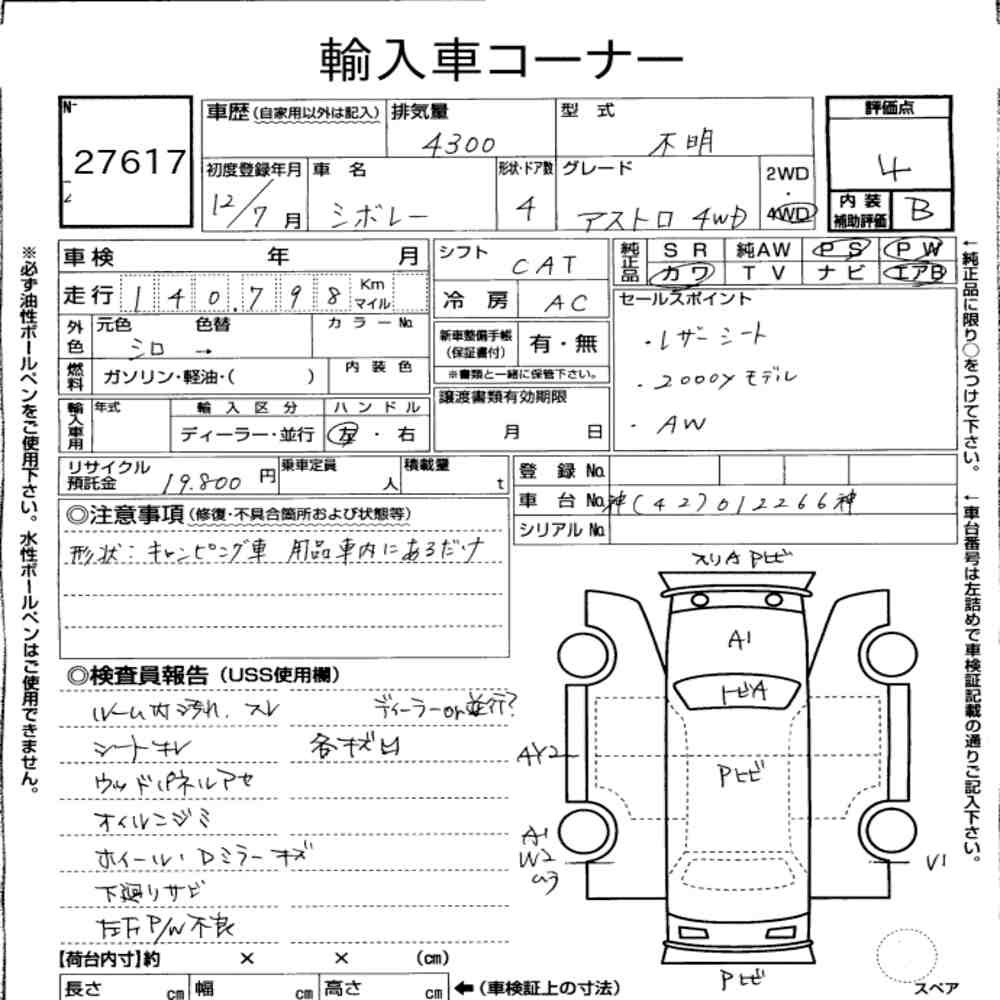 輸入車コーナー
N-
27617
車歴(自家用以外は記入)
排気量
4300
型 式
不明
評価点
4
初度登録年月
12/7月
車 名
シボレー
形状・ドア数
4
グレード
アストロ 4WD
2WD
・
4WD
内装
補助評価
B
車検 年 月
シフト
CAT
純正品
SR 純AW PS PW
カワ TV ナビ エアB
走行 140,798 Km マイル
冷 房
AC
セールスポイント
・レザーシート
・2000yモデル
・AW
外色
元色 色替
シロ →
カラーNo.
新車整備手帳
(保証書付)
有・無
※書類と一緒に保管下さい。
燃料
ガソリン・軽油・( )
内装色
譲渡書類有効期限
月 日
輸入車用
年式
輸入区分
ディーラー・並行
ハンドル
左・右
リサイクル
預託金
19.800円
乗車定員
人
積載量
t
登 録 No.
車 台 No. 神(42)012266神
シリアル No.
◎注意事項(修復・不具合箇所および状態等)
形状:キャンピング車 用品車内にあるだけ
◎検査員報告(USS使用欄)
ルーム内汚れ、スレ
ディーラーor並行?
シートキレ
各キズ凹
ウッドパネルアセ
オイルニジミ
ホイール・Dミラーキズ
下廻りサビ
左右P/W不良
スリA Pヒビ
A1
トビA
AY2
Pヒビ
A1
W2
ムラ
V1
Pヒビ
スペア
【荷台内寸】約 × × (cm)
長さ cm 幅 cm 高さ cm ←(車検証上の寸法)
※必ず油性ボールペンをご使用下さい。水性ボールペンはご使用できません。
←純正品に限り○をつけて下さい。
←車台番号は左詰めで車検証記載の通りご記入下さい。